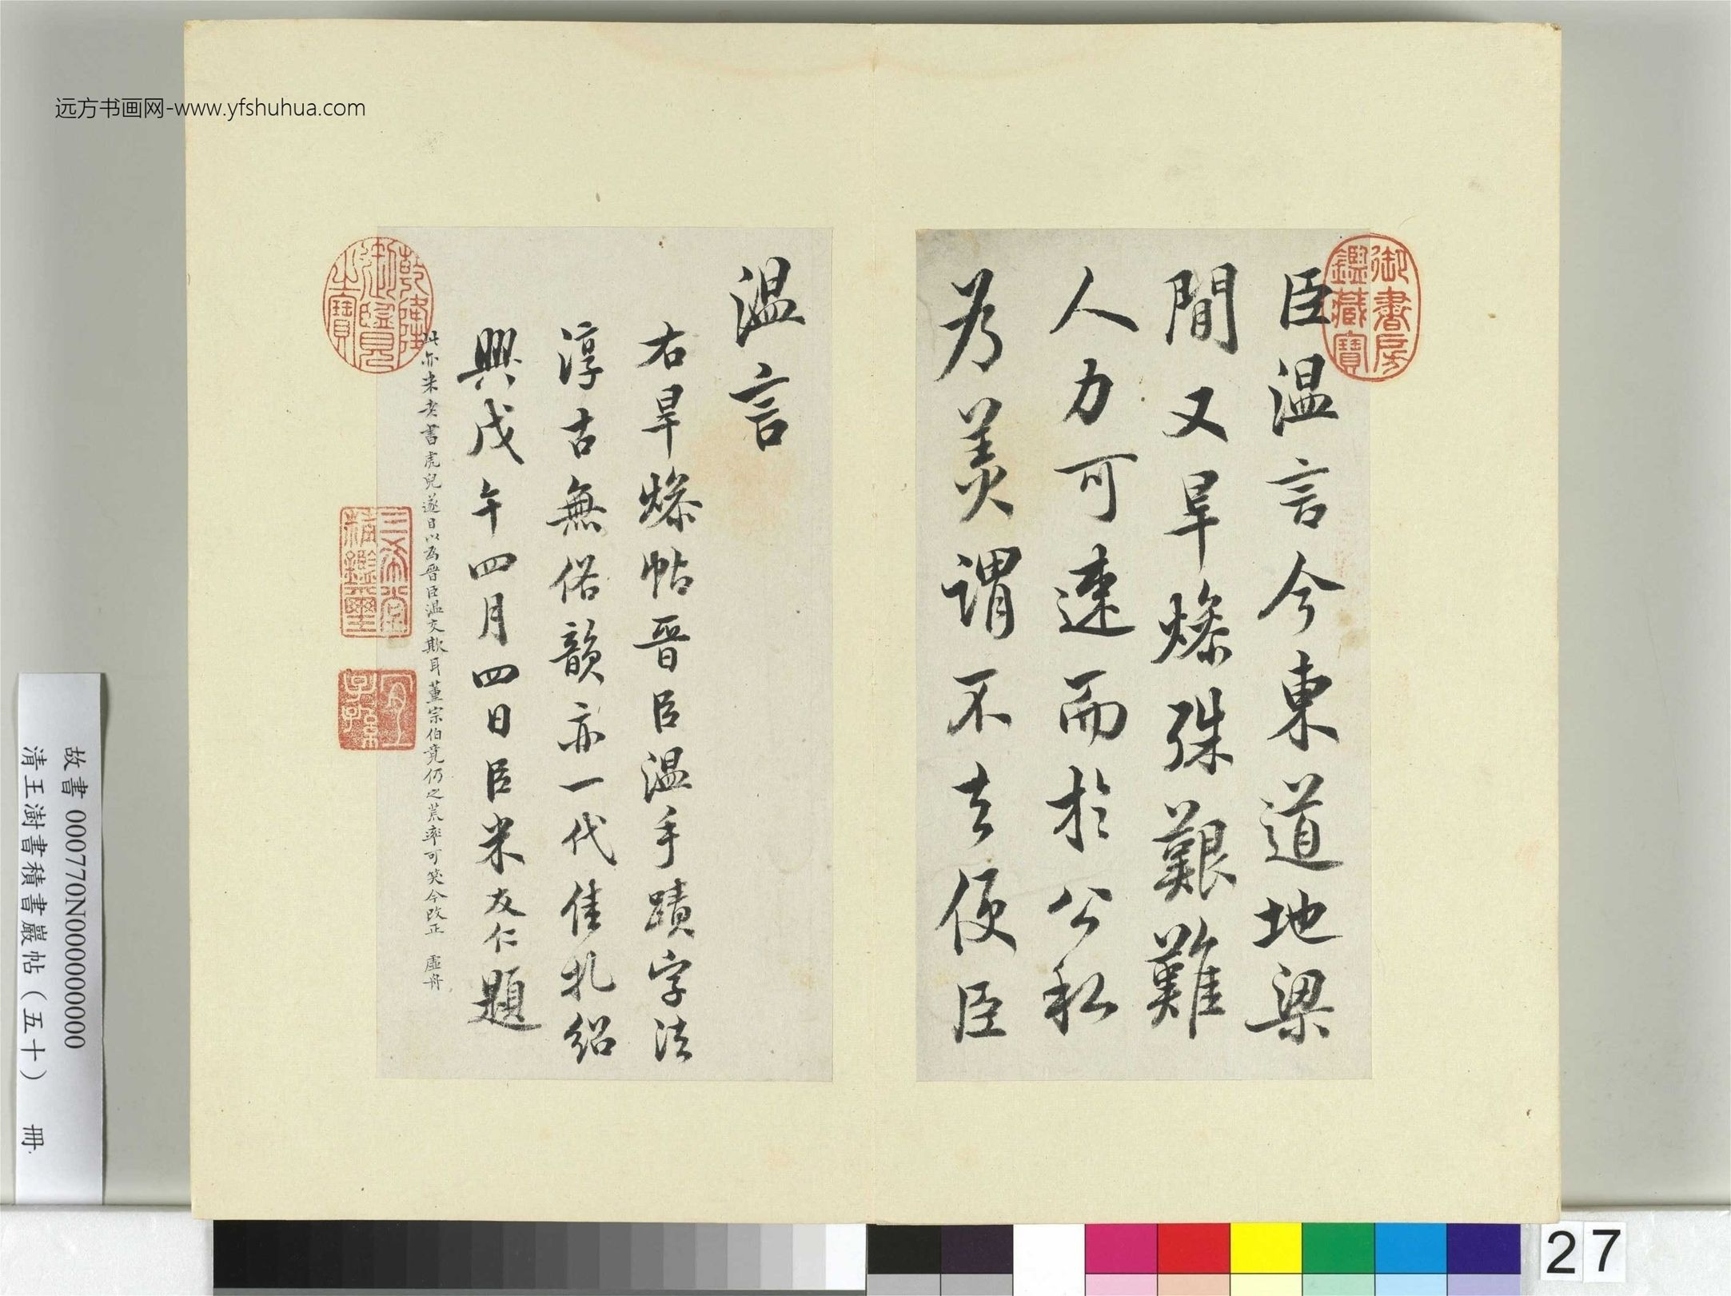 远方书画网-www.yfshuhua.com
臣温言今東道地梁
間又旱燥殊艱難
人力可速而於公私
为美謂不去便臣
温言
右旱燥帖晋臣温手蹟字法
淳古無俗韻亦一代佳札紹
興戊午四月四日臣米友仁題
此亦米老書虎兒遂目以为晋臣温文欺耳董宗伯竟仍之荒率可笑今改正 虛舟
御書房鑑藏寶
乾隆御覽之寶
三希堂精鑑璽
宜子孫
故書 000770N000000000
清王澍書積書巖帖(五十) 冊
27